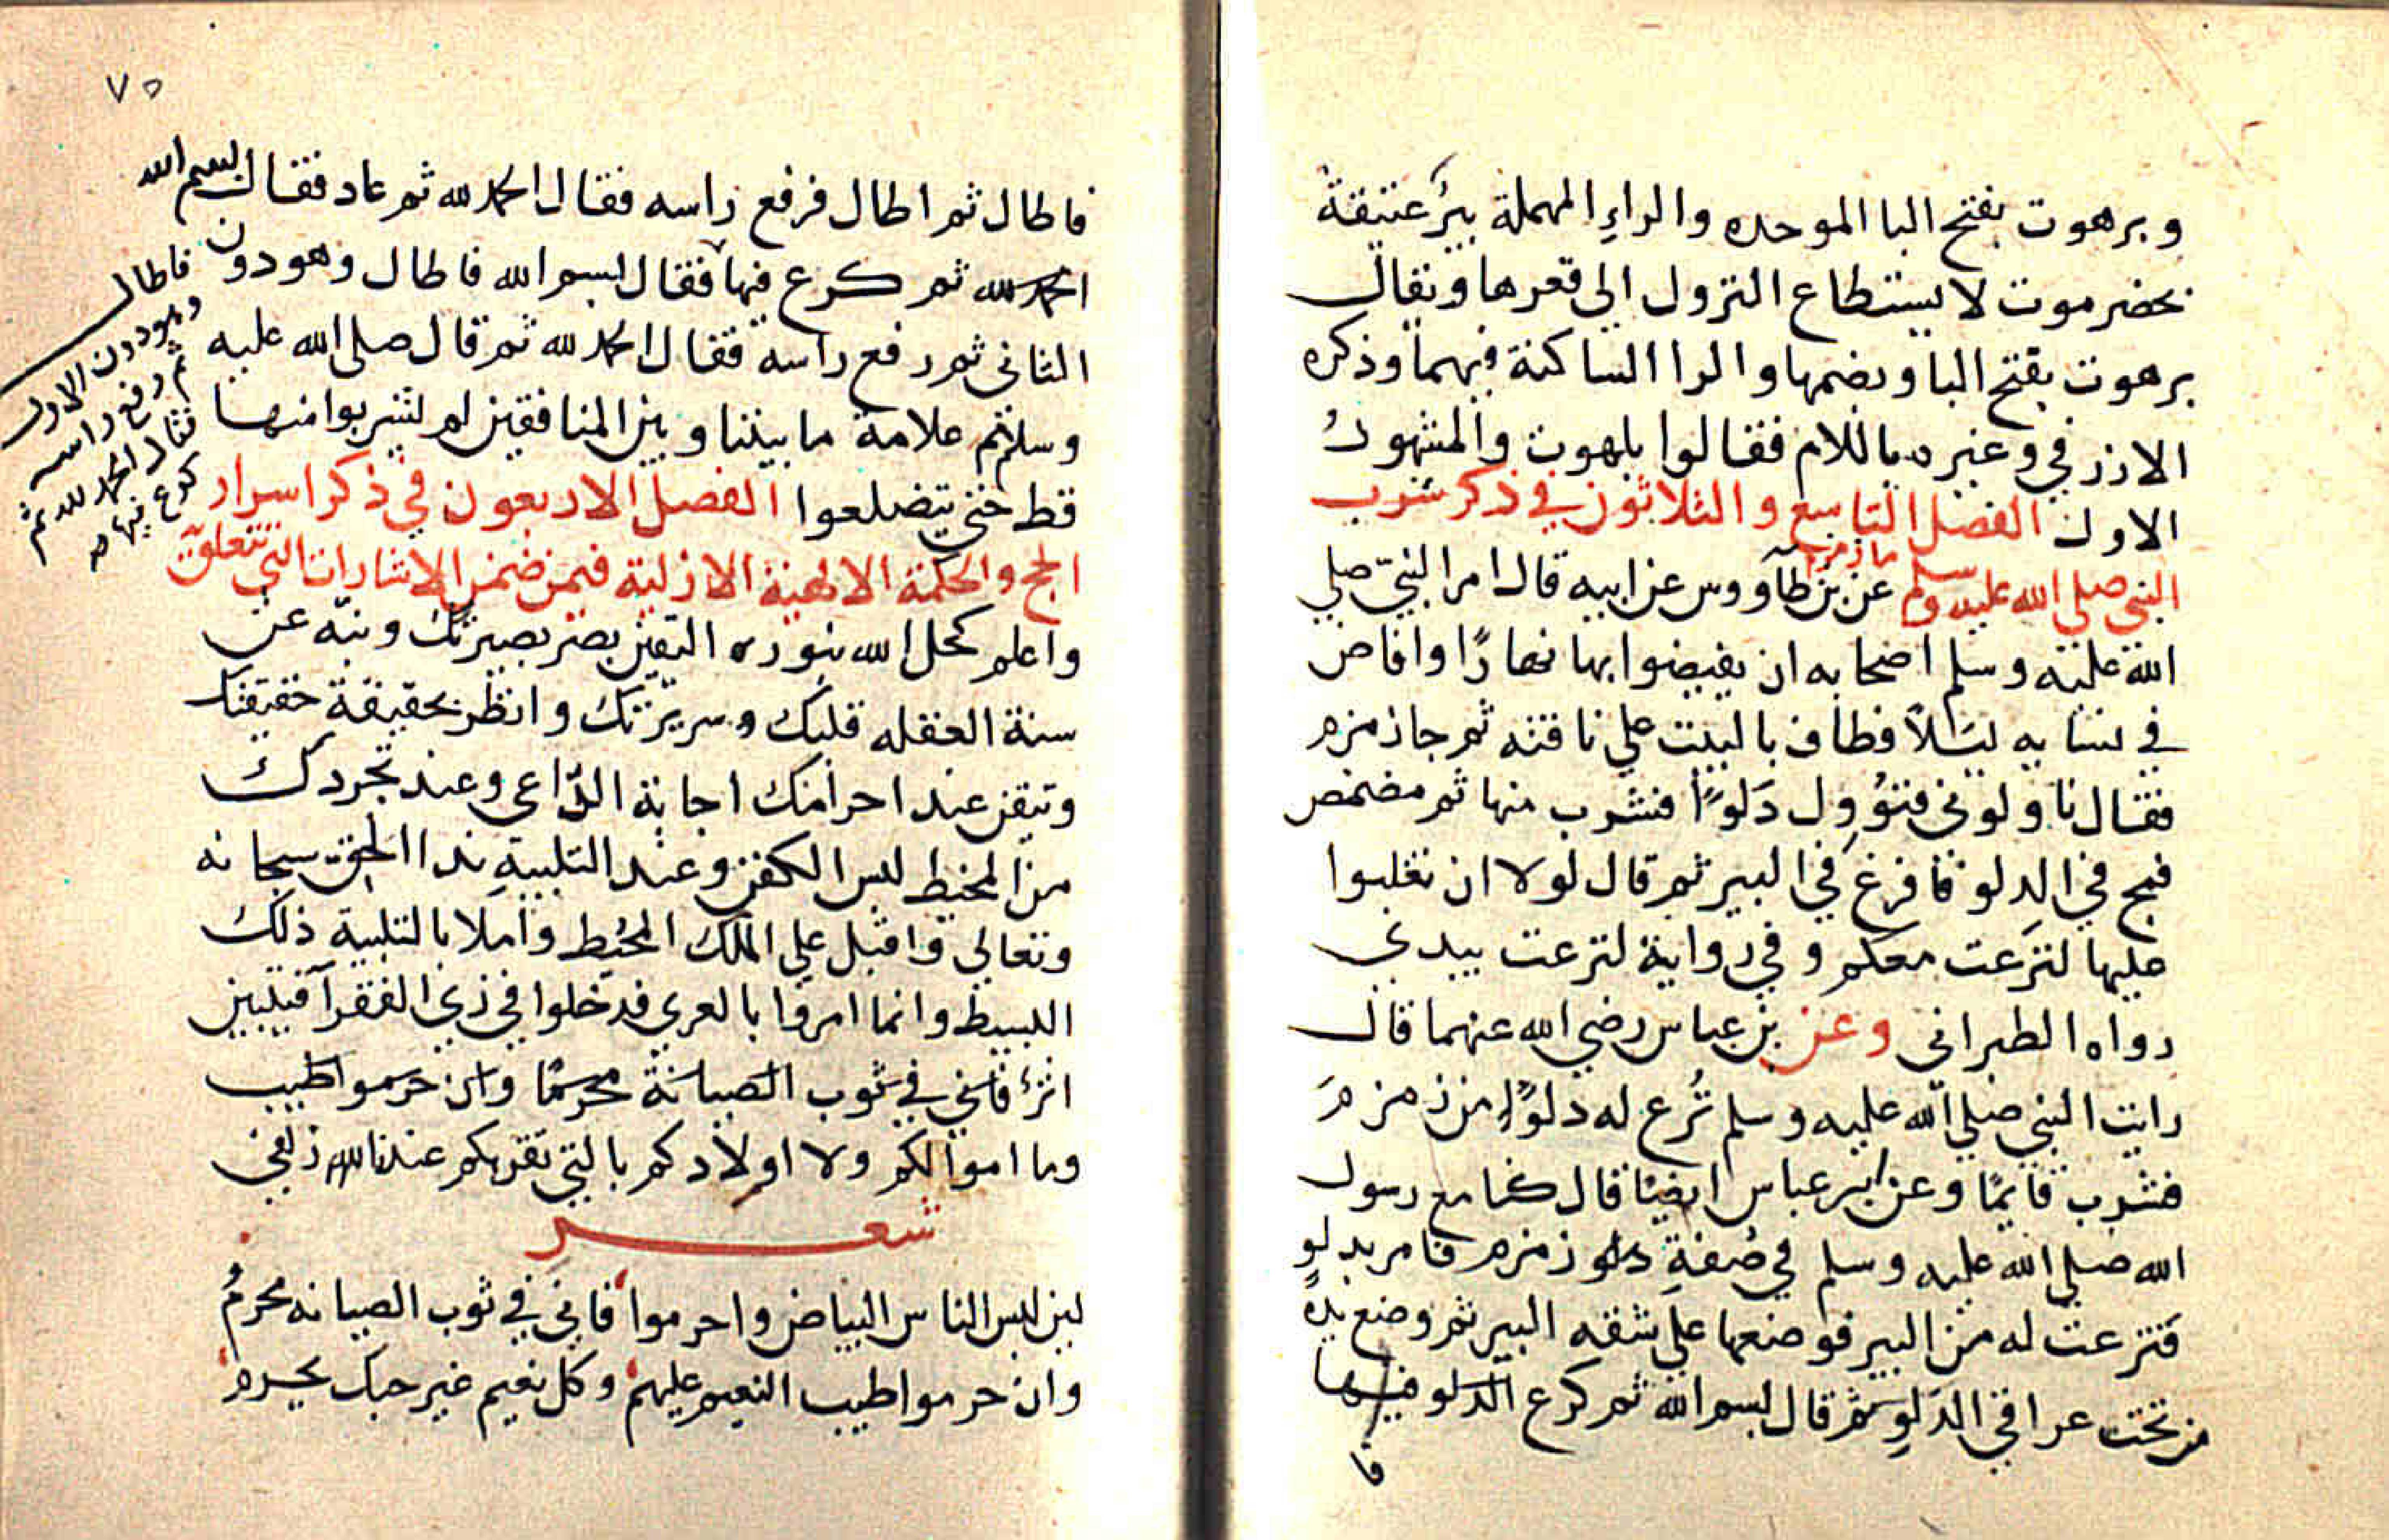 وبرهوت بفتح البا الموحده والراءِ المهملة بيرٌ عتيقة
بحضرموت لا يستطاع النزول الى قعرها ويقال
برهوت بفتح البا وبضمها والرا الساكنة فيهما وذكره
الازرقي وغيره باللام فقالوا بلهوت والمشهور
الاول الفصل التاسع والثلاثون في ذكر شرب
النبي صلي الله عليه وسلم ما زمزم عن بن طآووس عن ابيه قال امر النبيّ صلي
الله عليه وسلم اصحابه ان يفيضوا بها نهارًا وافاض
في نسايه ليلاً فطاف بالبيت علي ناقته ثم جا زمزم
فقال ناولوني فنُوول دَلوًا فشرب منها ثم مضمض
فمج في الدلو فافرغ في البير ثم قال لولا ان تغلبوا
عليها لنزعت معكم وفي رواية لنزعت بيدي
رواه الطبراني وعن بن عباس رضي الله عنهما قال
رايت النبي صلي الله عليه وسلم نُزع له دلوًا من زمزمَ
فشرب قايمًا وعن ابن عباس ايضًا قال كنا مع رسول
الله صلي الله عليه وسلم في صُفةِ زمزم فامر بدلوٍ
فنزعت له من البير فوضعها علي شقه البير ثم وضع يدهُ
من تحت عراقي الدَلوِ ثم قال بسم الله ثم كرع الدلو فيها
فا
٧٥
فاطال ثم اطال فرفع راسه فقال الحمد لله ثم عاد فقال بسم الله
الحمد لله ثم كرع فيها فقال بسم الله فاطال وهو دون
الثاني ثم رفع راسه فقال الحمد لله ثم قال صلى الله عليه
وسلم علامة ما بيننا وبين المنافقين لم يشربوا منها
قط حتي يتضلعوا الفصل الاربعون في ذكر اسرار
الحج والحكمة الالهية الازلية فيمن ضمن الاشارات التي تتعلق
واعلم كحل الله بنوره اليقين بصر بصيرتك ونبّه عن
سنة الغفله قلبك وسريرتك وانظر بحقيقة حقيقتك
وتيقن عند احرامك اجابة الدّاعي وعند تجردك
من المخيط لبس الكفن وعند التلبيةِ ندا الحق سبحانه
وتعالي واقبل علي الملك المحُيط واملا بالتلبية ذلك
البسيط وانما امروا بالعري فدخلوا في زي الفقرا فيبين
اثرُ فاني في ثوب الصيانة محرمًا وان حرموا طيب
وما اموالكم ولا اولادكم بالتي تقربكم عندنا زلفي
شعر
لين لبس الناس البياض واحرموا فاني في ثوب الصيانه محرمُ
وان حرموا طيب النعيم عليهم وكل نعيم غير حبك يحرم
فاطال
وهو دون الاول
ثم رفع راسه
فقال الحمد لله ثم
كرع فيها صح